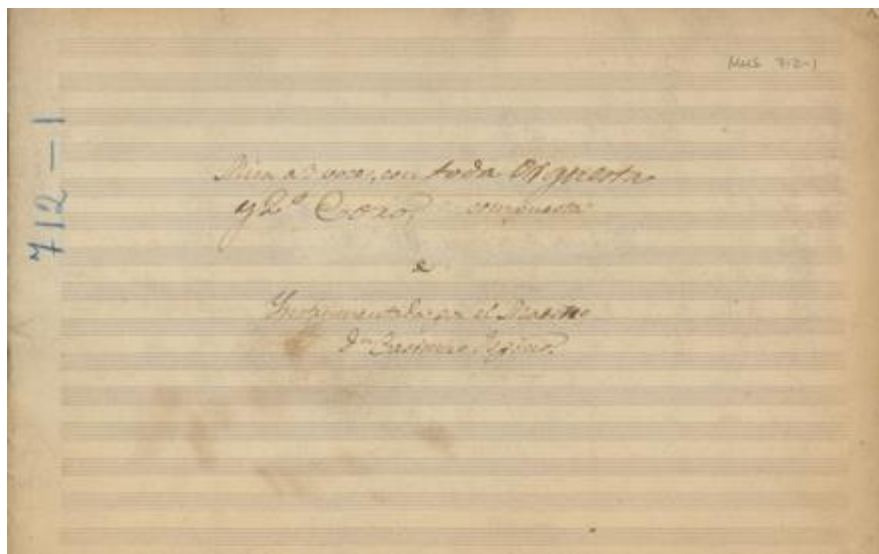 Mus 712-1
712-1
Misa a 3 voces, con toda Orquesta
y 2º Coro, compuesta
e
Instrumentada por el Maestro
Dn Casimiro Espino.